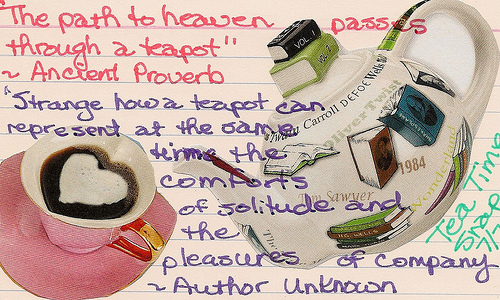 "The path to heaven passes
through a teapot"
~ Ancient Proverb
"Strange how a teapot can
represent at the same
time the
comforts
of solitude and
the
pleasures of company
~ Author Unknown
VOL. 1
VOL. 2
Carroll DEFOE Wells
Oliver Twist
1984
Sawyer
H.G. WELLS
Tea Time